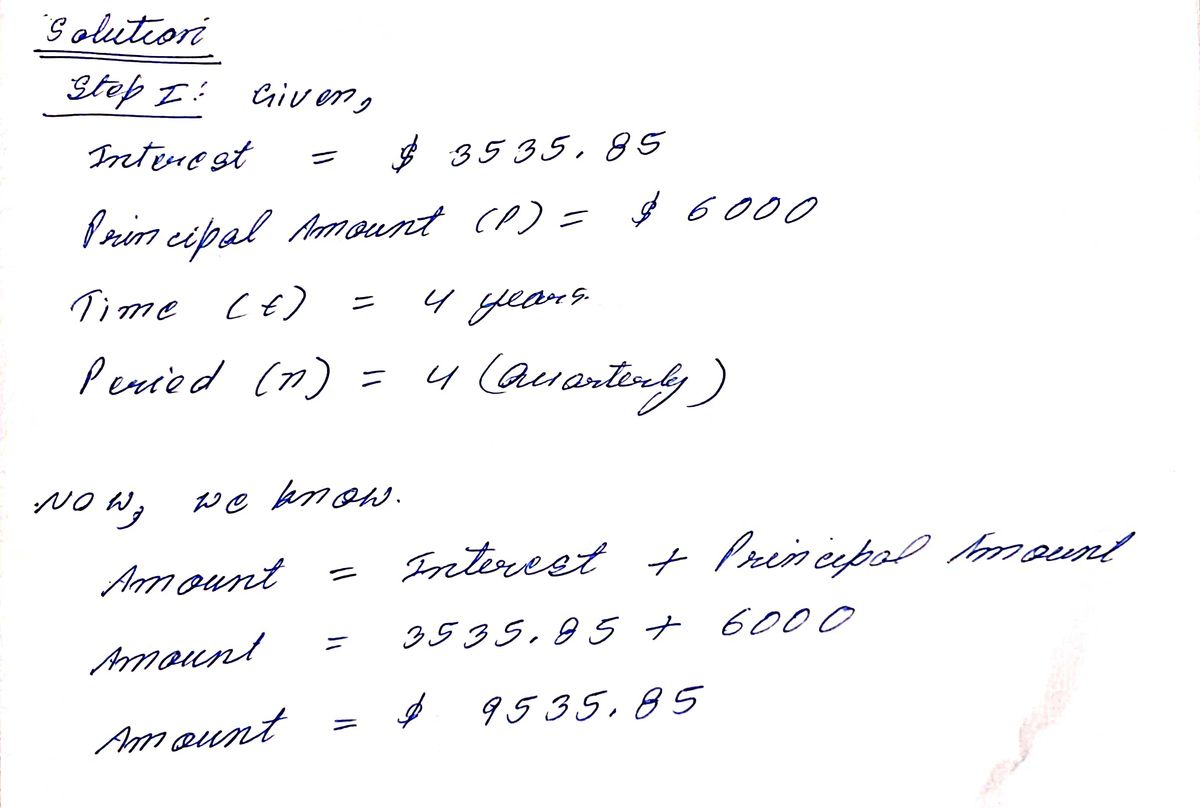 Solution
Step I: Given,
Interest = $ 3535.85
Principal Amount (P) = $ 6000
Time (t) = 4 years.
Period (n) = 4 (Quarterly)
Now, we know.
Amount = Interest + Principal Amount
Amount = 3535.85 + 6000
Amount = $ 9535.85